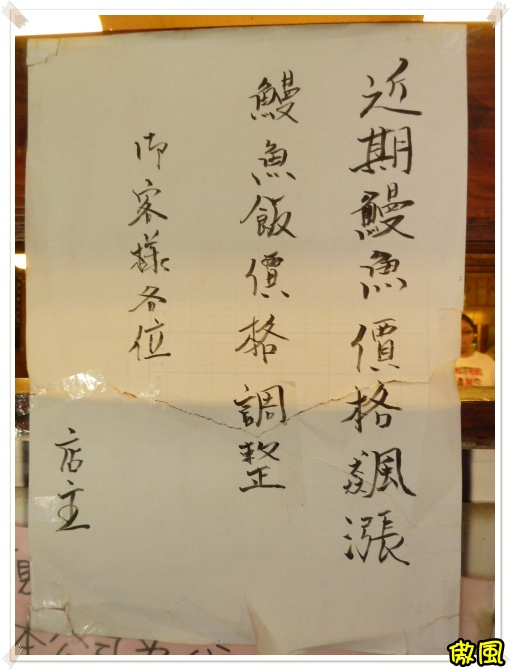 近期鰻魚價格飆漲
鰻魚飯價格調整
御客様各位
店主
傲風